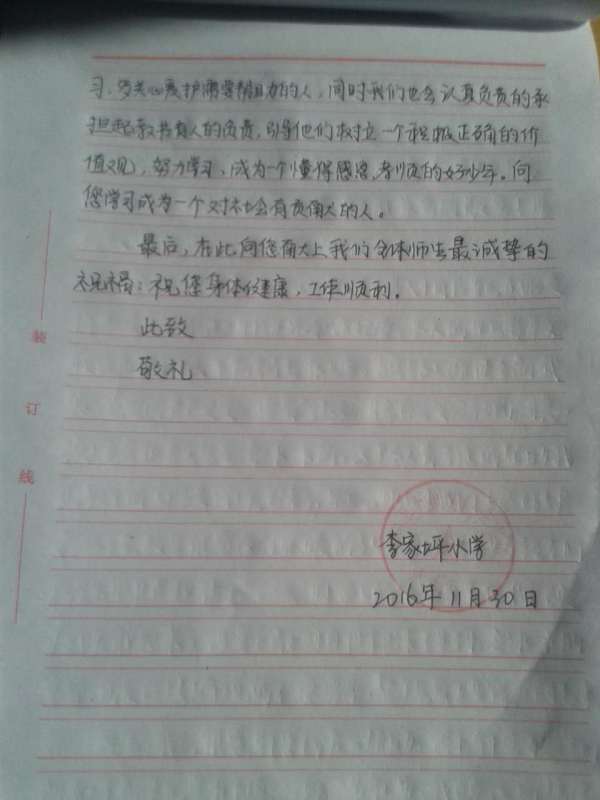 习,多关心爱护需要帮助的人,同时我们也会认真负责的承
担起教书育人的负责,引导他们树立一个积极正确的价
值观,努力学习,成为一个懂得感恩,孝顺的好少年。向
您学习成为一个对社会有贡献的人。
最后,在此向您献上我们全体师生最诚挚的
祝福:祝您身体健康,工作顺利。
此致
敬礼
装
订
线
李家坪小学
2016年11月30日